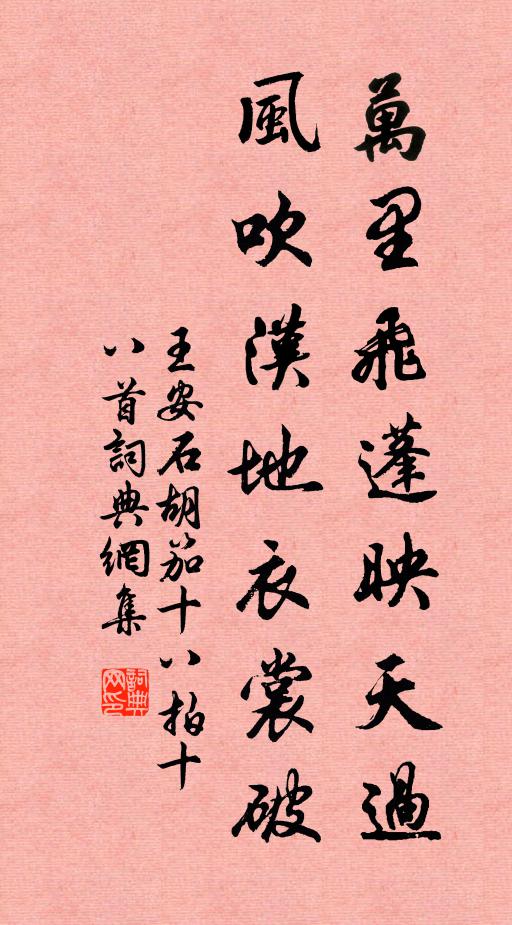 萬里飛蓬映天過
風吹漢地衣裳破
王安石胡笳十八拍十
八首詞典網集
詞典網印